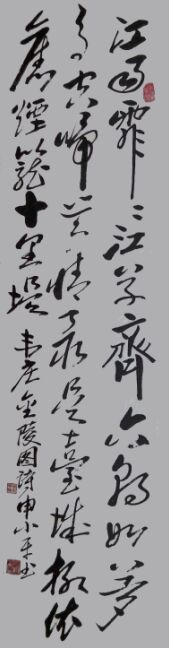 江雨霏〻江草齊六朝如夢
鳥空啼無情最是臺城柳依
舊煙籠十里堤 韦庄金陵图詩申小平书